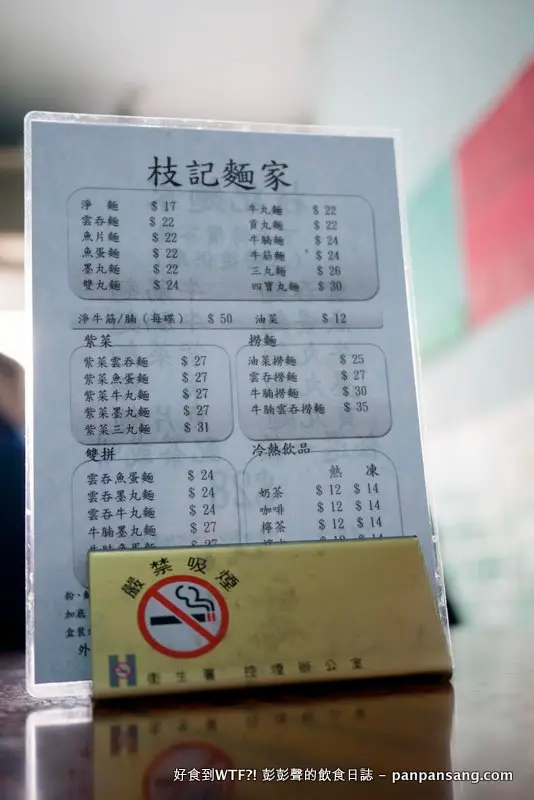 枝記麵家
淨麵 $ 17
雲吞麵 $ 22
魚片麵 $ 22
魚蛋麵 $ 22
墨丸麵 $ 22
雙丸麵 $ 24
牛丸麵 $ 22
貢丸麵 $ 22
牛腩麵 $ 24
牛筋麵 $ 24
三丸麵 $ 26
四寶丸麵 $ 30
淨牛筋/腩（每碟） $ 50 油菜 $ 12
紫菜
紫菜雲吞麵 $ 27
紫菜魚蛋麵 $ 27
紫菜牛丸麵 $ 27
紫菜墨丸麵 $ 27
紫菜三丸麵 $ 31
撈麵
油菜撈麵 $ 25
雲吞撈麵 $ 27
牛腩撈麵 $ 30
牛腩雲吞撈麵 $ 35
雙拼
雲吞魚蛋麵 $ 24
雲吞墨丸麵 $ 24
雲吞牛丸麵 $ 24
牛腩墨丸麵 $ 27
牛腩魚蛋麵 $ 27
冷熱飲品
熱 凍
奶茶 $ 12 $ 14
咖啡 $ 12 $ 14
檸茶 $ 12 $ 14
粉、
加底
盒裝
外
嚴禁吸煙
衛生署 控煙辦公室
好食到WTF?! 彭彭聲的飲食日誌 – panpansang.com